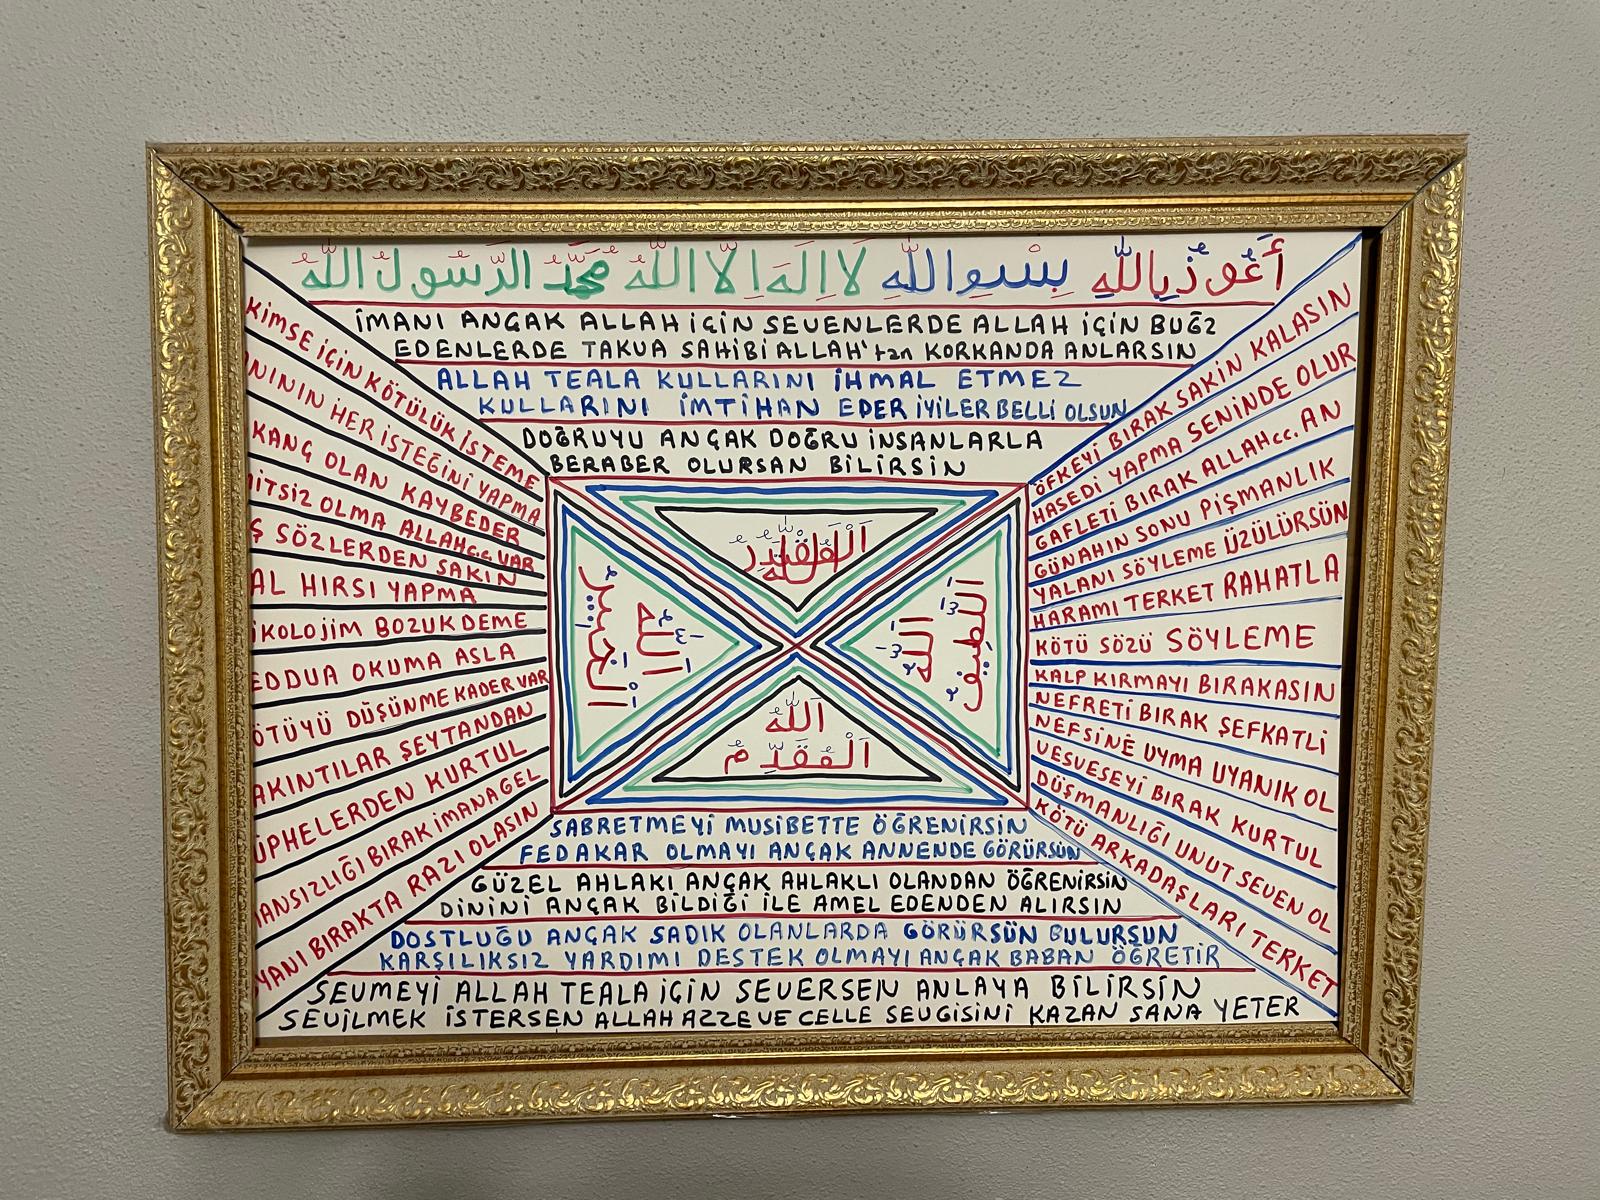 أَعُوذُ بِاللَّهِ بِسْمِ اللَّهِ لَا اِلَهَ اِلَّا اللَّهُ مُحَمَّدُ الرَّسُولُ اللَّهُ
İMANI ANÇAK ALLAH İÇİN SEVENLERDE ALLAH İÇİN BUĞZ
EDENLERDE TAKVA SAHİBİ ALLAH'tan KORKANDA ANLARSIN
ALLAH TEALA KULLARINI İHMAL ETMEZ
KULLARINI İMTİHAN EDER İYİLER BELLİ OLSUN
DOĞRUYU ANÇAK DOĞRU İNSANLARLA
BERABER OLURSAN BİLİRSİN
KİMSE İÇİN KÖTÜLÜK İSTEME
NININ HER İSTEĞİNİ YAPMA
KANÇ OLAN KAYBEDER
MİTSİZ OLMA ALLAH c.c. VAR
Ş SÖZLERDEN SAKIN
AL HIRSI YAPMA
İKOLOJİM BOZUK DEME
EDDUA OKUMA ASLA
ÖTÜYÜ DÜŞÜNME KADER VAR
AKINTILAR ŞEYTANDAN
ÜPHELERDEN KURTUL
ANSIZLIĞI BIRAK İMANA GEL
YANI BIRAKTA RAZI OLASIN
الله
اللَّهُ
الْخَبِيرُ
اللَّهُ
اللَّطِيفُ
اللَّهُ
الْمُقَدِّمُ
ÖFKEYİ BIRAK SAKİN KALASIN
HASEDİ YAPMA SENİNDE OLUR
GAFLETİ BIRAK ALLAH cc. AN
GÜNAHIN SONU PİŞMANLIK
YALANI SÖYLEME ÜZÜLÜRSÜN
HARAMI TERKET RAHATLA
KÖTÜ SÖZÜ SÖYLEME
KALP KIRMAYI BIRAKASIN
NEFRETİ BIRAK ŞEFKATLİ
NEFSİNE UYMA UYANIK OL
VESVESEYİ BIRAK KURTUL
DÜŞMANLIĞI UNUT SEVEN OL
KÖTÜ ARKADAŞLARI TERKET
SABRETMEYİ MUSİBETTE ÖĞRENİRSİN
FEDAKAR OLMAYI ANÇAK ANNENDE GÖRÜRSÜN
GÜZEL AHLAKI ANÇAK AHLAKLI OLANDAN ÖĞRENİRSİN
DİNİNİ ANÇAK BİLDİĞİ İLE AMEL EDENDEN ALIRSIN
DOSTLUĞU ANÇAK SADIK OLANLARDA GÖRÜRSÜN BULURSUN
KARŞILIKSIZ YARDIMI DESTEK OLMAYI ANÇAK BABAN ÖĞRETİR
SEVMEYİ ALLAH TEALA İÇİN SEVERSEN ANLAYA BİLİRSİN
SEVİLMEK İSTERSEN ALLAH AZZE VE CELLE SEVGİSİNİ KAZAN SANA YETER